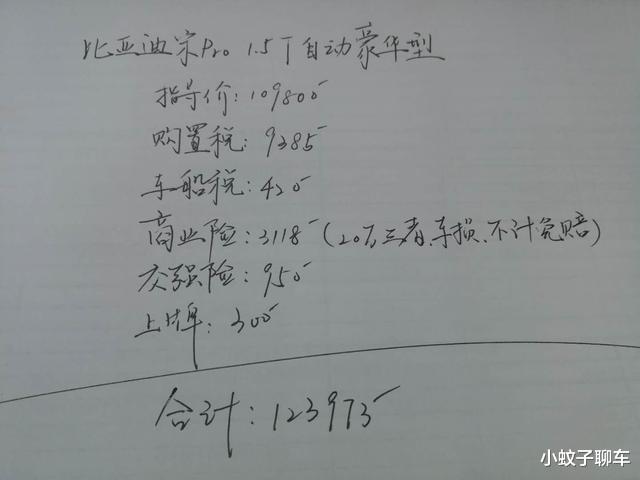 比亚迪宋Pro 1.5T自动豪华型
指导价:109800
购置税:9385
车船税:420
商业险:3118(20万三者、车损、不计免赔)
交强险:950
上牌:300
合计:123973
小蚊子聊车